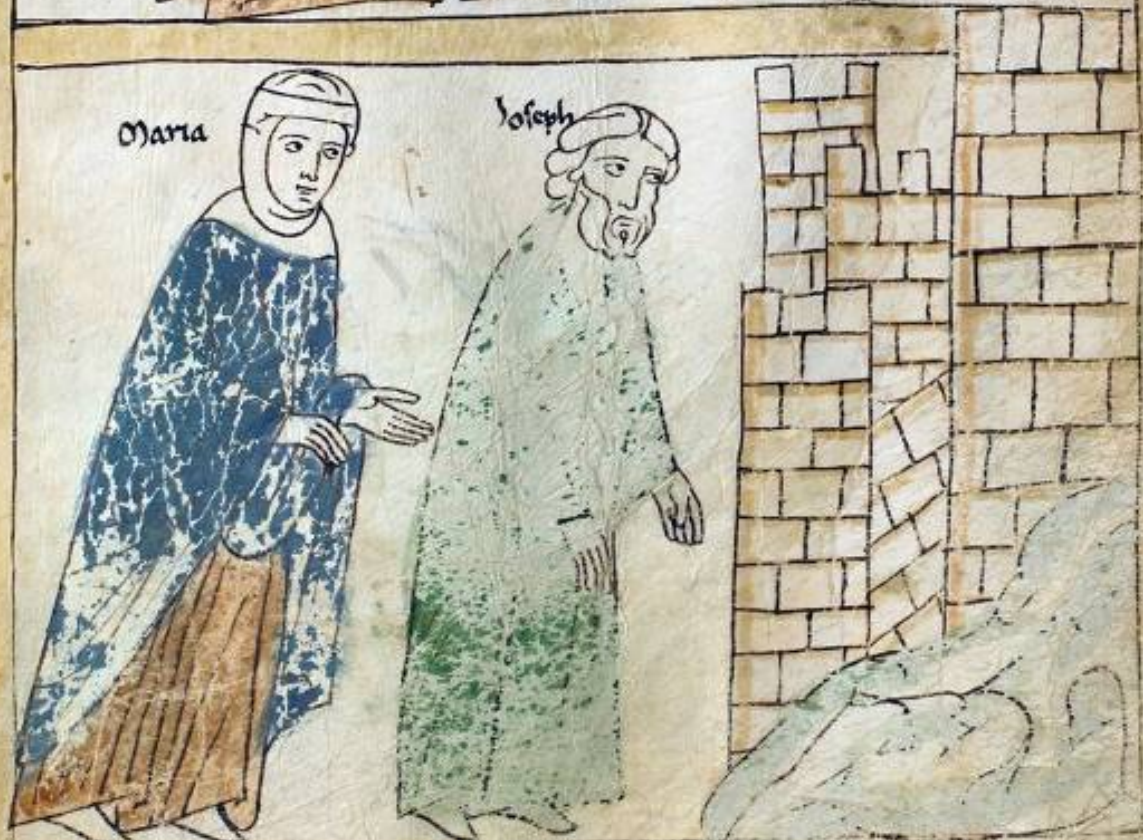 Maria
Joseph